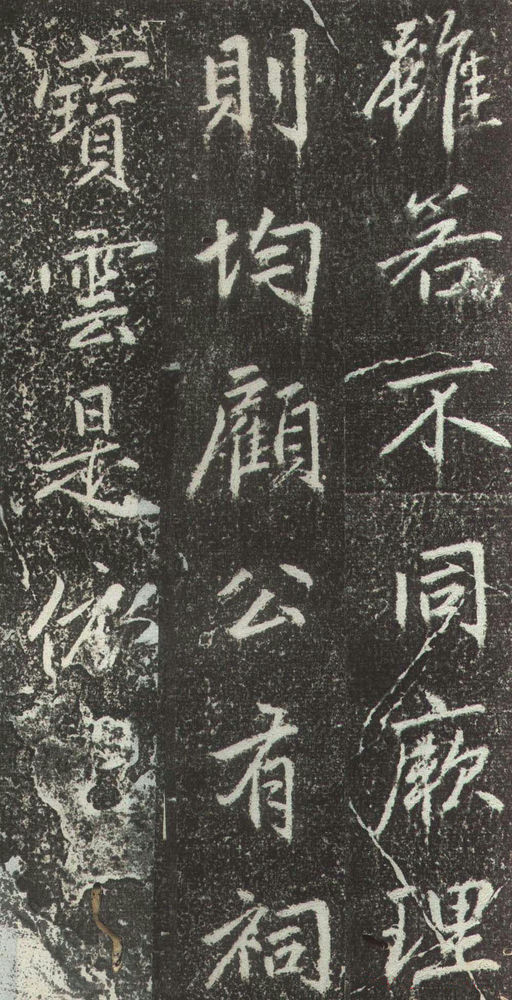 雖若不同厥理
則均顧公有祠
寶雲是依思